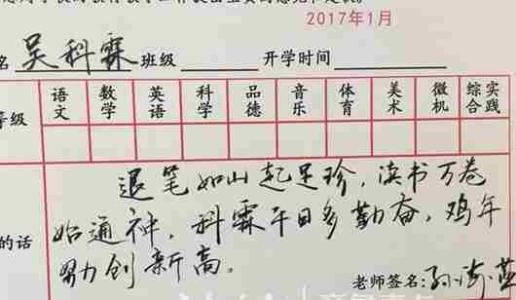 2017年1月
名 吴科霖 班级 开学时间
等级 语文 数学 英语 科学 品德 音乐 体育 美术 微机 综合实践
退笔如山起足珍，读书万卷
始通神，科霖平日多勤奋，鸡年
的话 努力创新高。
老师签名：